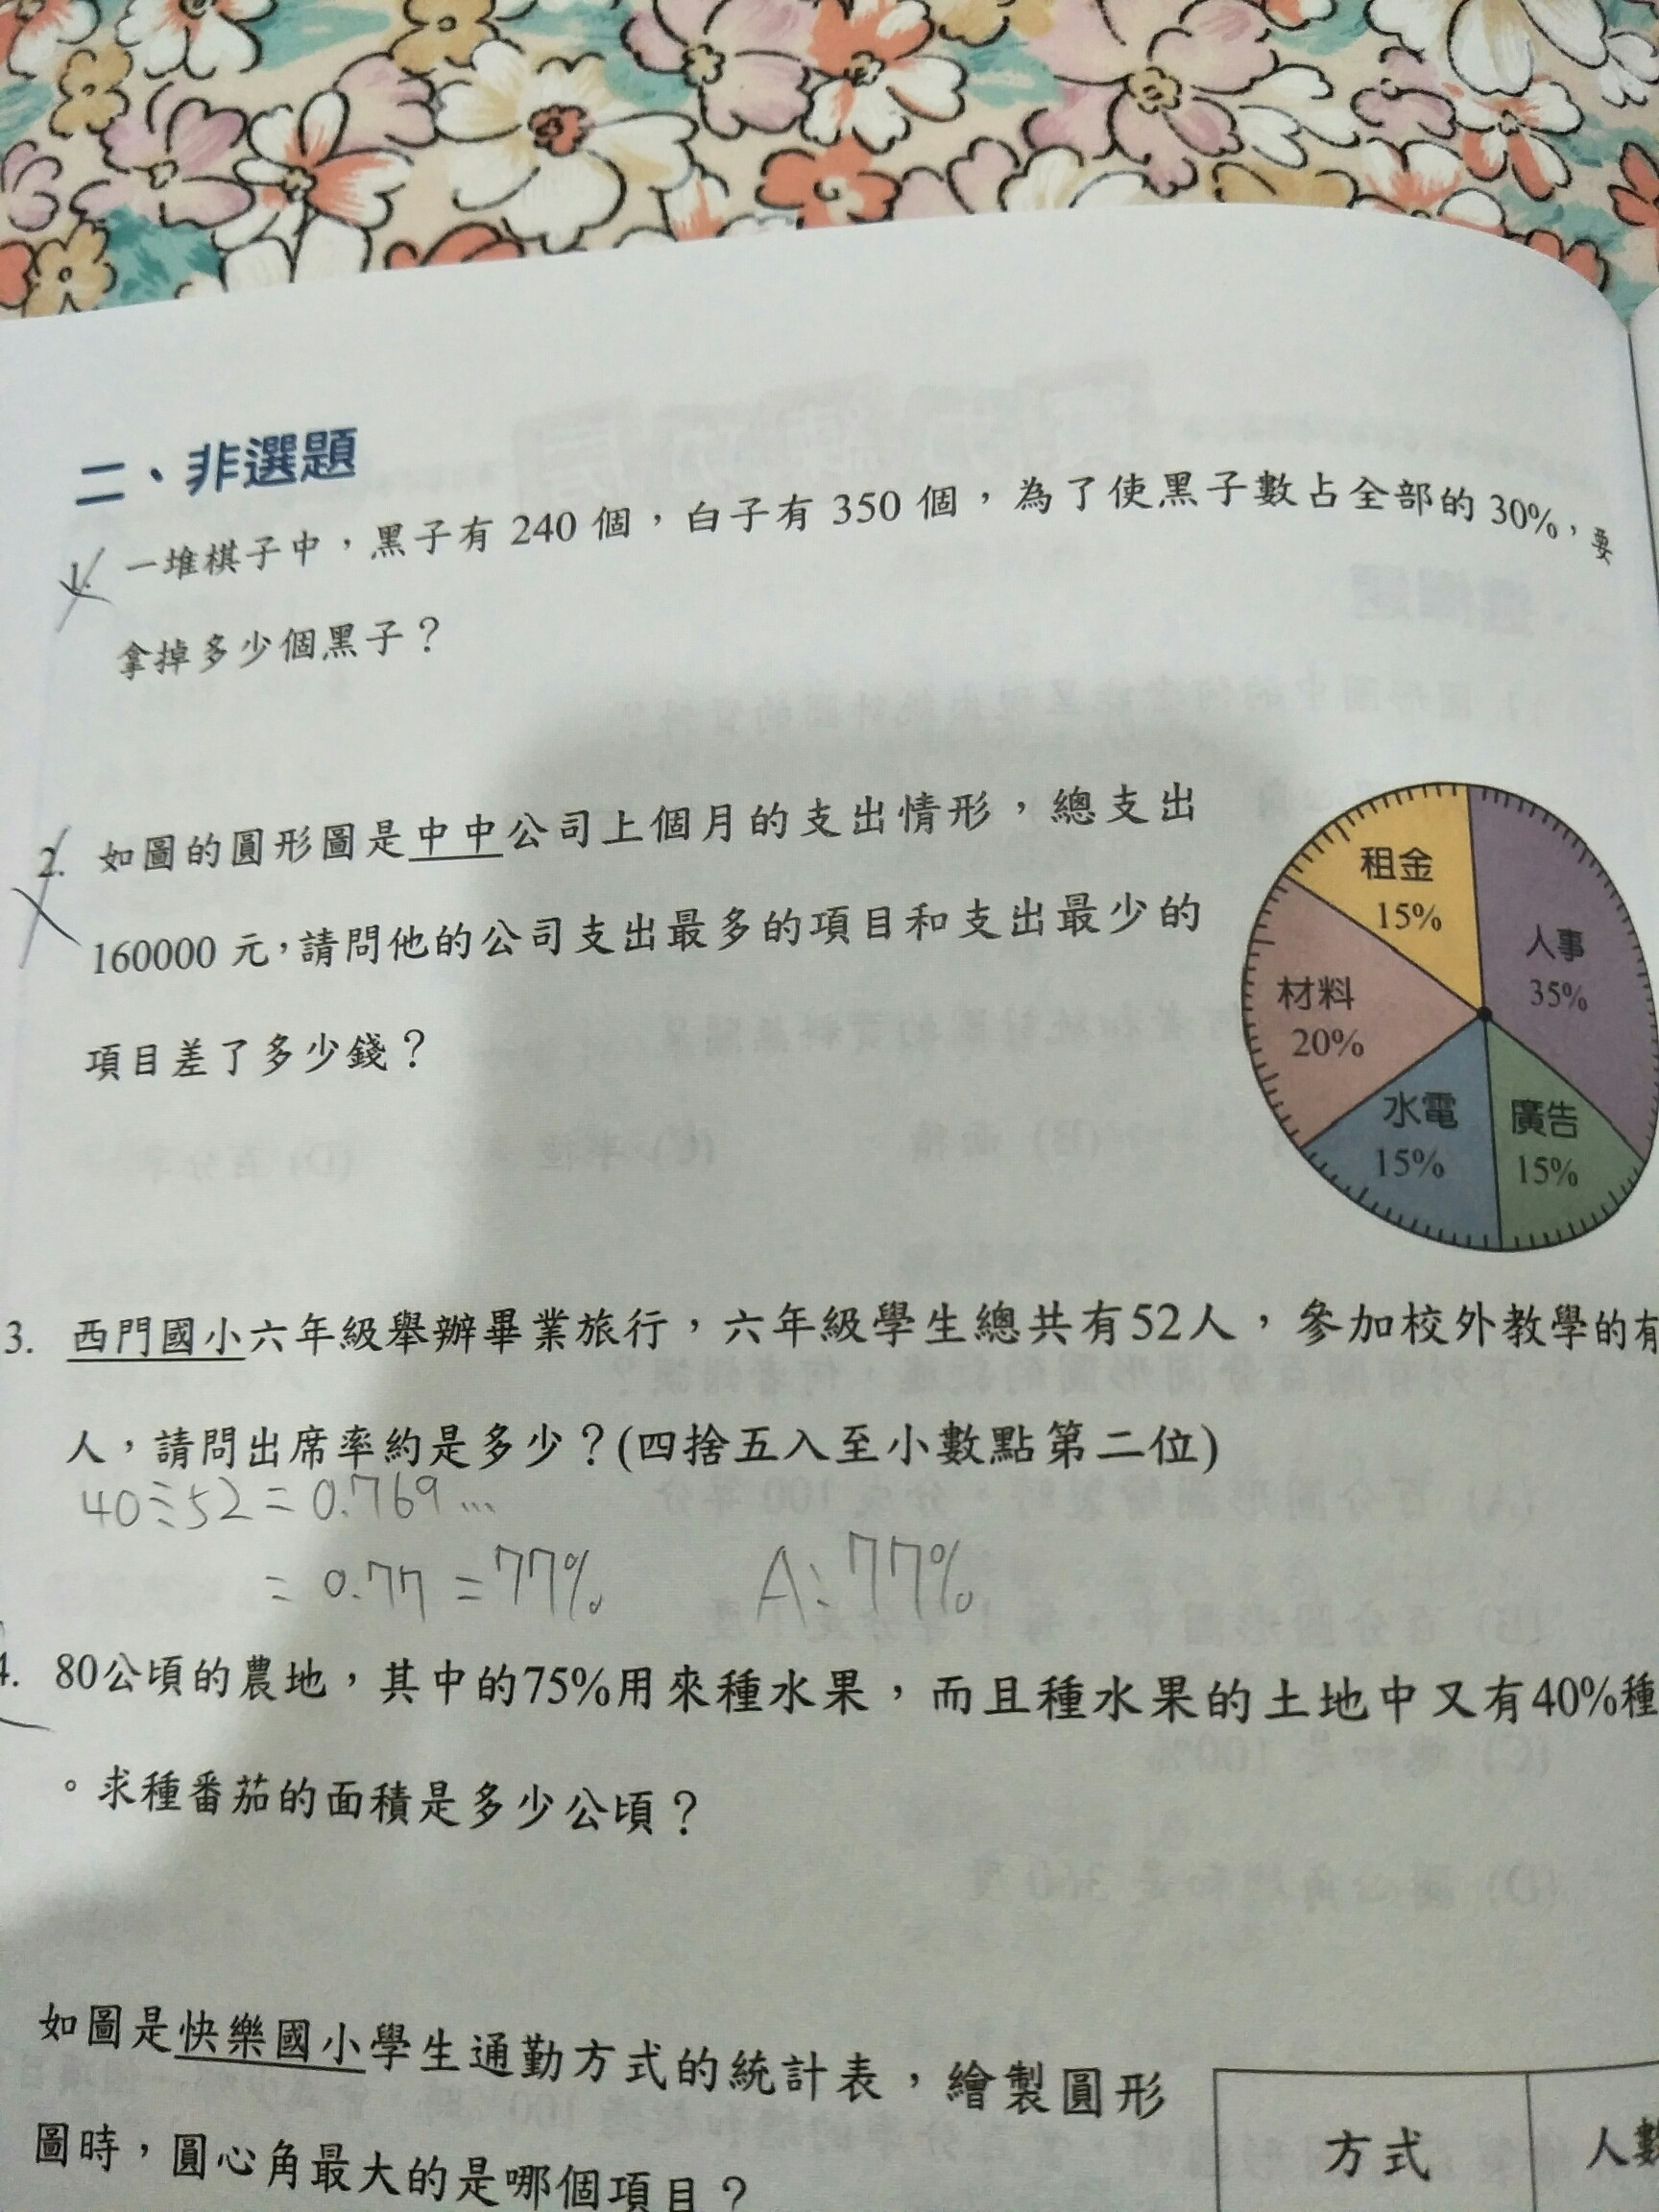 二、非選題
1. 一堆棋子中，黑子有 240 個，白子有 350 個，為了使黑子數占全部的 30%，要
拿掉多少個黑子？
2. 如圖的圓形圖是中中公司上個月的支出情形，總支出
160000 元，請問他的公司支出最多的項目和支出最少的
項目差了多少錢？
租金
15%
人事
35%
材料
20%
水電
15%
廣告
15%
3. 西門國小六年級舉辦畢業旅行，六年級學生總共有52人，參加校外教學的有
人，請問出席率約是多少？(四捨五入至小數點第二位)
40÷52=0.769…
=0.77=77% A:77%
4. 80公頃的農地，其中的75%用來種水果，而且種水果的土地中又有40%種
。求種番茄的面積是多少公頃？
如圖是快樂國小學生通勤方式的統計表，繪製圓形
圖時，圓心角最大的是哪個項目？
方式 人數